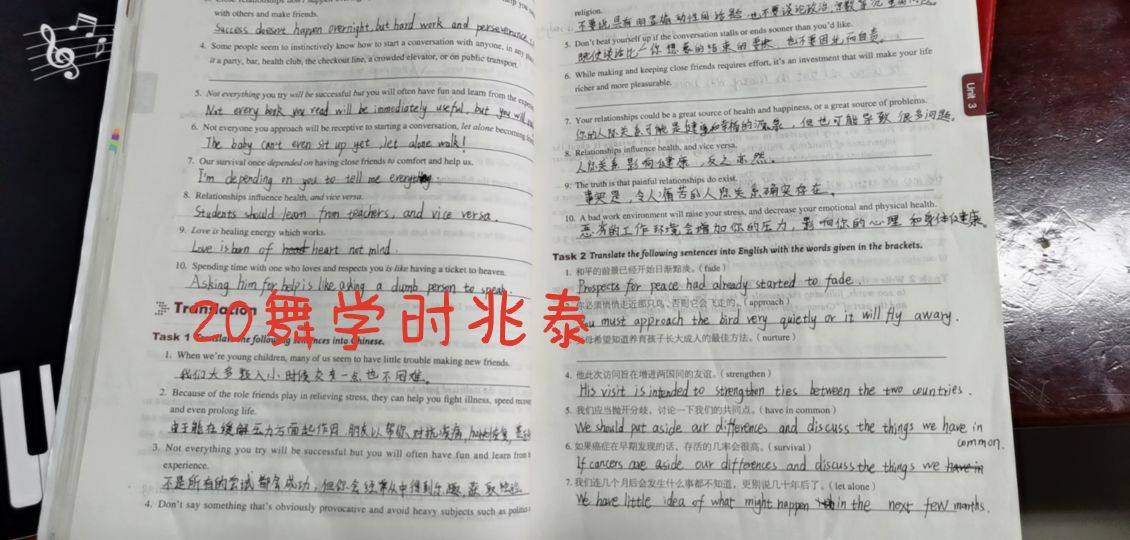 with others and make friends.
Success doesn't happen overnight, but hard work and perseverance
4. Some people seem to instinctively know how to start a conversation with anyone, in any
a party, bar, health club, the checkout line, a crowded elevator, or on public transport.
5. Not everything you try will be successful but you will often have fun and learn from the
Not every book you read will be immediately useful, but you will
6. Not everyone you approach will be receptive to starting a conversation, let alone becoming
The baby can't even sit up yet, let alone walk!
7. Our survival once depended on having close friends to comfort and help us.
I'm depending on you to tell me everything.
8. Relationships influence health, and vice versa.
Students should learn from teachers, and vice versa.
9. Love is healing energy which works.
Love is born of heart not mind.
10. Spending time with one who loves and respects you is like having a ticket to heaven.
Asking him for help is like asking a dumb person to speak.
Translation
20舞学时兆泰
Task 1 Translate the following sentences into Chinese.
1. When we're young children, many of us seem to have little trouble making new friends.
我们大多数人小时候交友一点也不困难。
2. Because of the role friends play in relieving stress, they can help you fight illness, speed
and even prolong life.
由于能在缓解压力方面起作用,朋友可以帮你对抗疾病,
3. Not everything you try will be successful but you will often have fun and learn from
experience.
不是所有的尝试都会成功,但你会经常从中得到乐趣,获取经验
4. Don't say something that's obviously provocative and avoid heavy subjects such as
religion.
不要说具有明显煽动性的话题,也不要谈论政治,宗教等
5. Don't beat yourself up if the conversation stalls or ends sooner than you'd like.
即使谈话比你想象的结束的要快,也不要因此而自责。
6. While making and keeping close friends requires effort, it's an investment that will make your life
richer and more pleasurable.
7. Your relationships could be a great source of health and happiness, or a great source of problems.
你的人际关系可能是健康和幸福的源泉,但也可能导致很多问题。
8. Relationships influence health, and vice versa.
人际关系影响健康,反之亦然。
9. The truth is that painful relationships do exist.
事实是,令人痛苦的人际关系确实存在。
10. A bad work environment will raise your stress, and decrease your emotional and physical health.
恶劣的工作环境会增加你的压力,影响你的心理和身体健康。
Unit 3
Task 2 Translate the following sentences into English with the words given in the brackets.
1. 和平的前景已经开始日渐黯淡。(fade)
Prospects for peace had already started to fade.
你必须悄悄走近那只鸟,否则它会飞走的。(approach)
You must approach the bird very quietly or it will fly awary.
母希望知道养育孩子长大成人的最佳方法。(nurture)
4. 他此次访问旨在增进两国间的友谊。(strengthen)
His visit is intended to strengthen ties between the two countries.
5. 我们应当抛开分歧,讨论一下我们的共同点。(have in common)
We should put aside our differences and discuss the things we have in
common.
6. 如果癌症在早期发现的话,存活的几率会很高。(survival)
If cancers are aside our differences and discuss the things we have in
7. 我们连几个月后会发生什么事都不知道,更别说几十年后了。(let alone)
We have little idea of what might happen in the next few months.